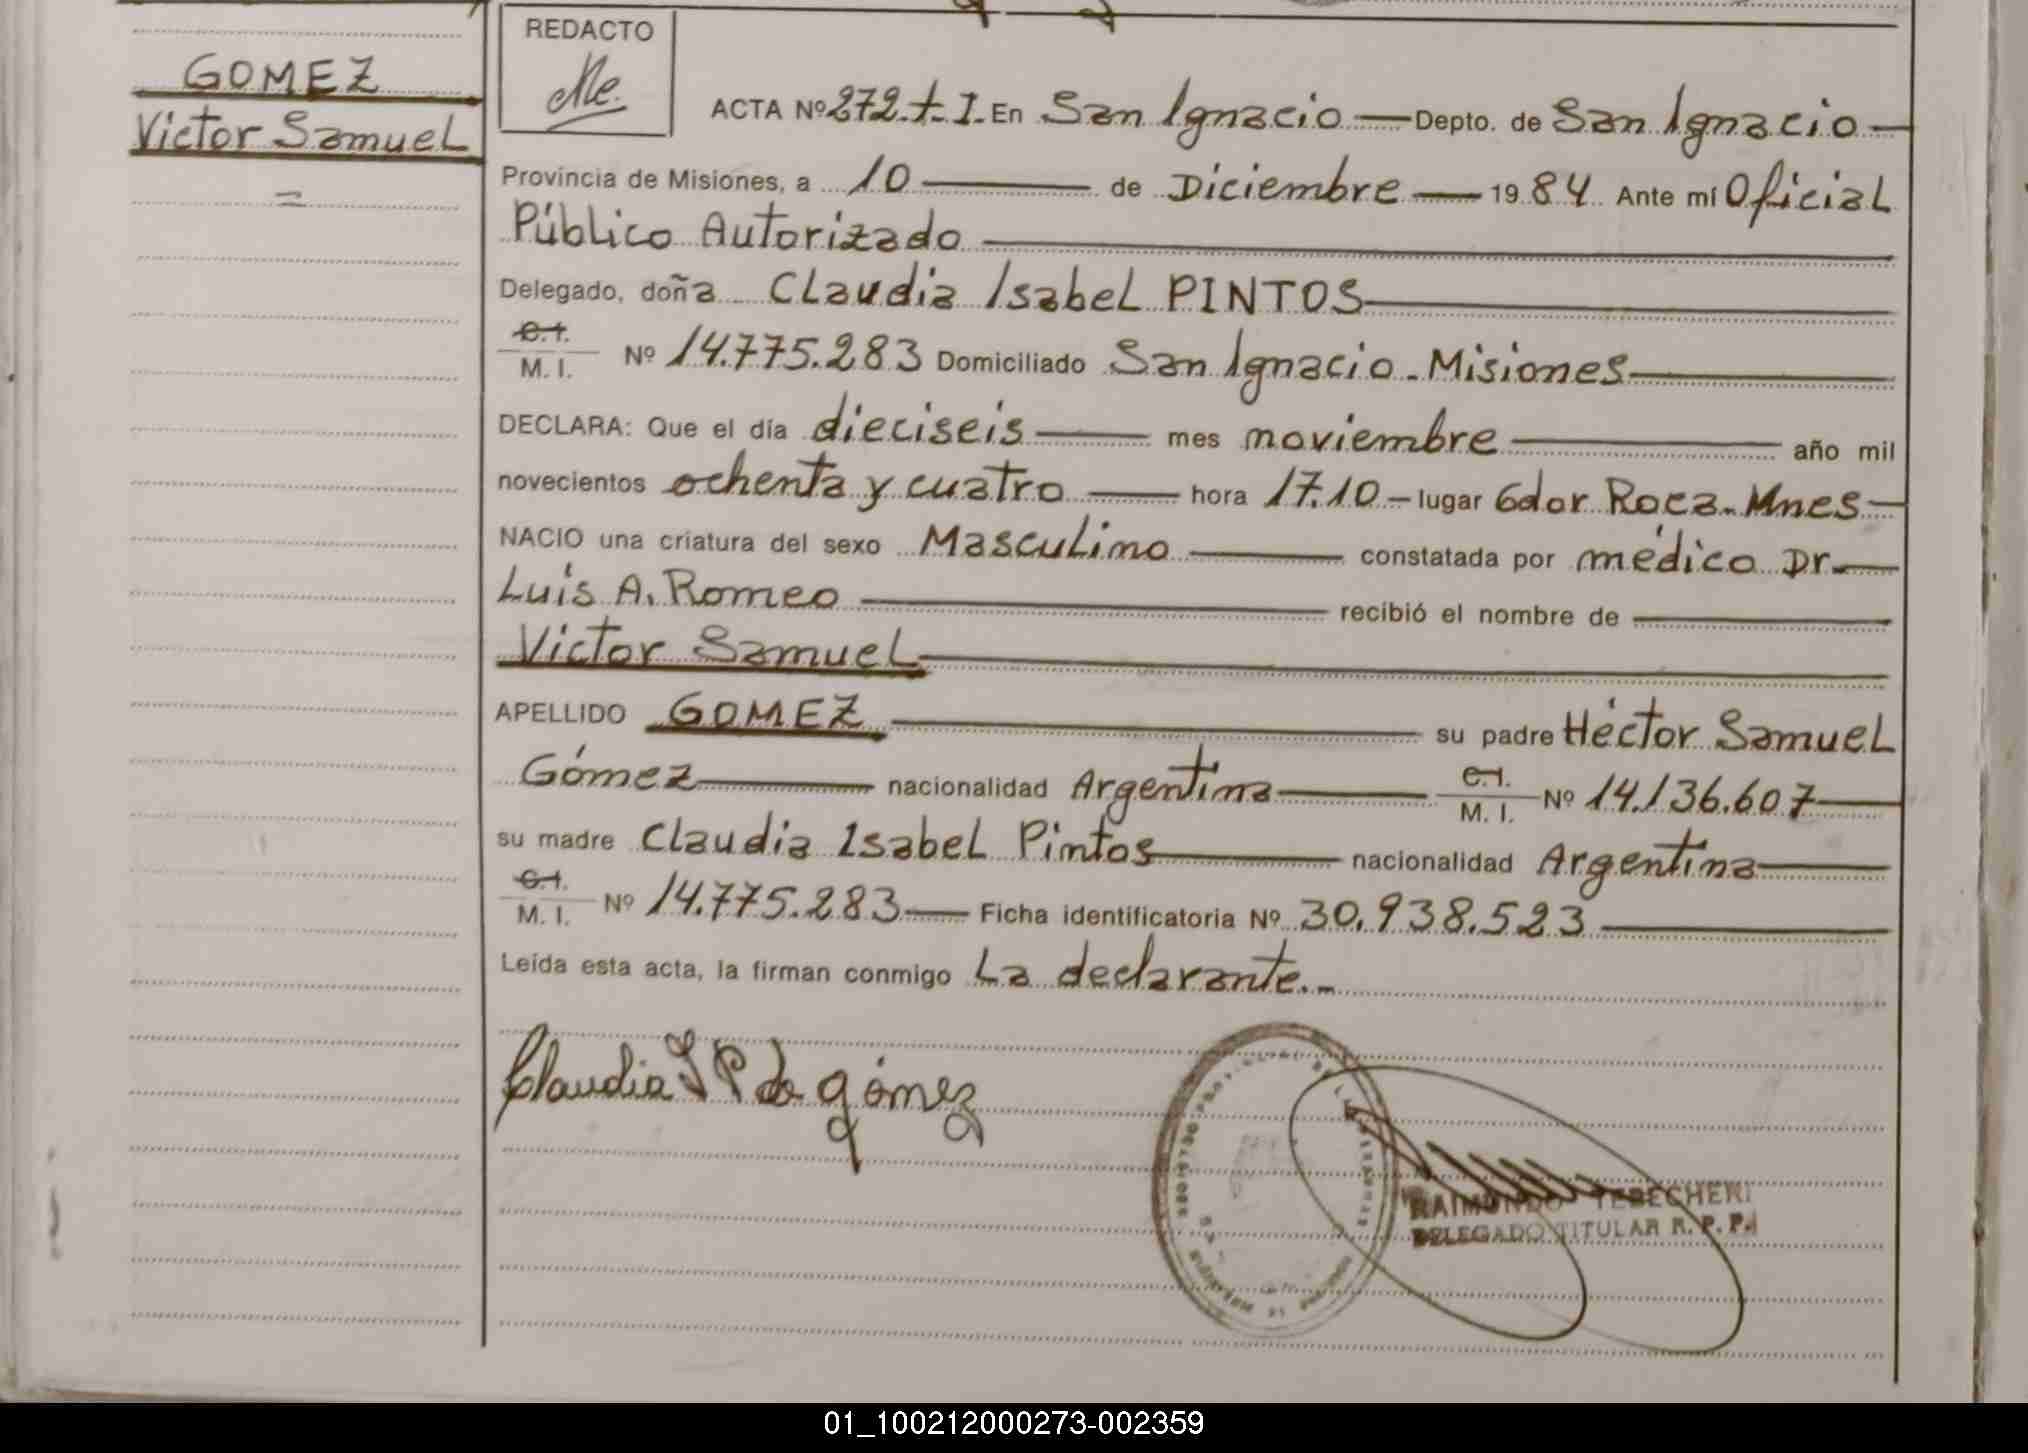 GOMEZ
Victor Samuel
=
REDACTO
ACTA Nº 272.t-I. En San Ignacio — Depto. de San Ignacio —
Provincia de Misiones, a 10 — de Diciembre — 1984 Ante mí Oficial
Público Autorizado —
Delegado, doña Claudia Isabel PINTOS —
C.I.
M. I. Nº 14.775.283 Domiciliado San Ignacio - Misiones —
DECLARA: Que el día dieciseis — mes noviembre — año mil
novecientos ochenta y cuatro — hora 17.10 - lugar Gdor Roca - Mnes —
NACIO una criatura del sexo Masculino — constatada por médico Dr. —
Luis A. Romeo — recibió el nombre de —
Victor Samuel —
APELLIDO GOMEZ — su padre Héctor Samuel
Gómez — nacionalidad Argentina — C.I. M. I. Nº 14.136.607 —
su madre Claudia Isabel Pintos — nacionalidad Argentina —
C.I.
M. I. Nº 14.775.283 — Ficha identificatoria Nº 30.938.523 —
Leída esta acta, la firman conmigo La declarante.-
Claudia I P de gómez
RAIMUNDO TEBECHERI
DELEGADO TITULAR R. P. P.
01_100212000273-002359